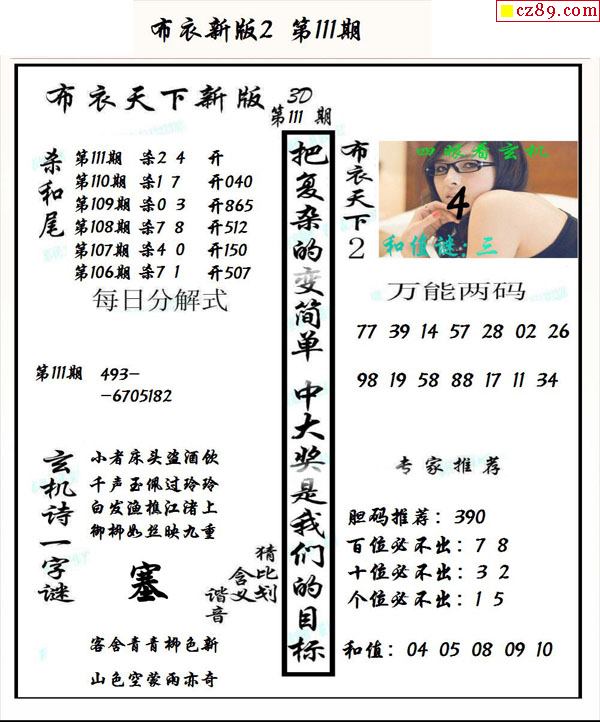 cz89.com
布衣新版2 第111期
布衣天下新版 3D
第111 期
杀和尾
第111期 杀2 4 开
第110期 杀1 7 开040
第109期 杀0 3 开865
第108期 杀7 8 开512
第107期 杀4 0 开150
第106期 杀7 1 开507
每日分解式
第111期 493-
-6705182
玄机诗一字谜
小者床头盗酒饮
千声玉佩过玲玲
白发渔樵江渚上
柳柳如丝映九重
塞
猜比划
含义
谐音
客舍青青柳色新
山色空蒙雨亦奇
把复杂的变简单 中大奖是我们的目标
布衣天下2
四眼看玄机
4
和值谜:三
万能两码
77 39 14 57 28 02 26
98 19 58 88 17 11 34
专家推荐
胆码推荐：390
百位必不出：7 8
十位必不出：3 2
个位必不出：1 5
和值：04 05 08 09 10